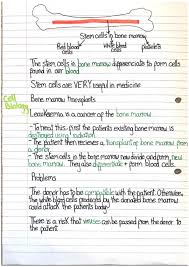 Stem cells in bone marrow
Red blood cells
White blood cells
platelets
The stem cells in bone marrow differenciate to form cells
found in our blood
Stem cells are VERY useful in medicine
Cell Biology
Bone marrow transplants
Leukaemia is a cancer of the bone marrow
- To treat this: first the patients existing bone marrow is
destroyed using radiation
- The patient then recieves a transplant of bone marrow from
a donor
- The stem cells in the bone marrow now divide and form new
bone marrow. They also differentiate + form blood cells
Problems
The donor has to be compatible with the patient. Otherwise
the white blood cells produced by the donated bone marrow
could attack the patients body
There is a risk that viruses can be passed from the donor to
the patient